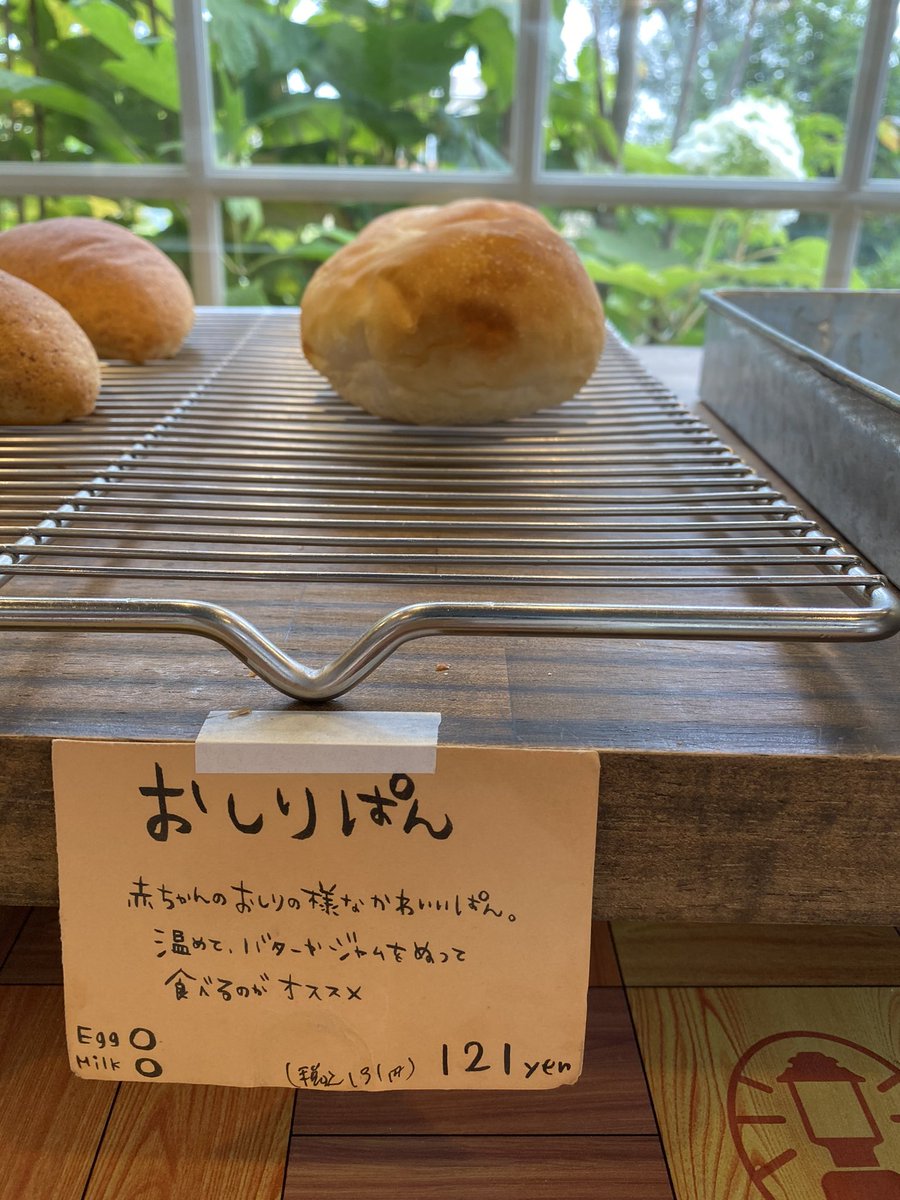 おしりぱん
赤ちゃんのおしりの様なかわいいぱん。
温めて、バターやジャムをぬって
食べるのがオススメ
Egg○
Milk○
(税込131円) 121yen